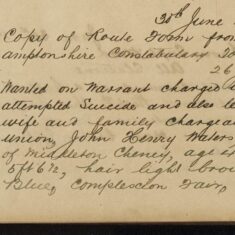 30th June
Copy of Route Form from
amptonshire Constabulary
26
Wanted on Warrant charged
attempted Suicide and also
wife and family chargea
union, John Henry Waters
of Middleton Cheney, age
5ft 6½, hair light bro
Blue, Complexion Fair,